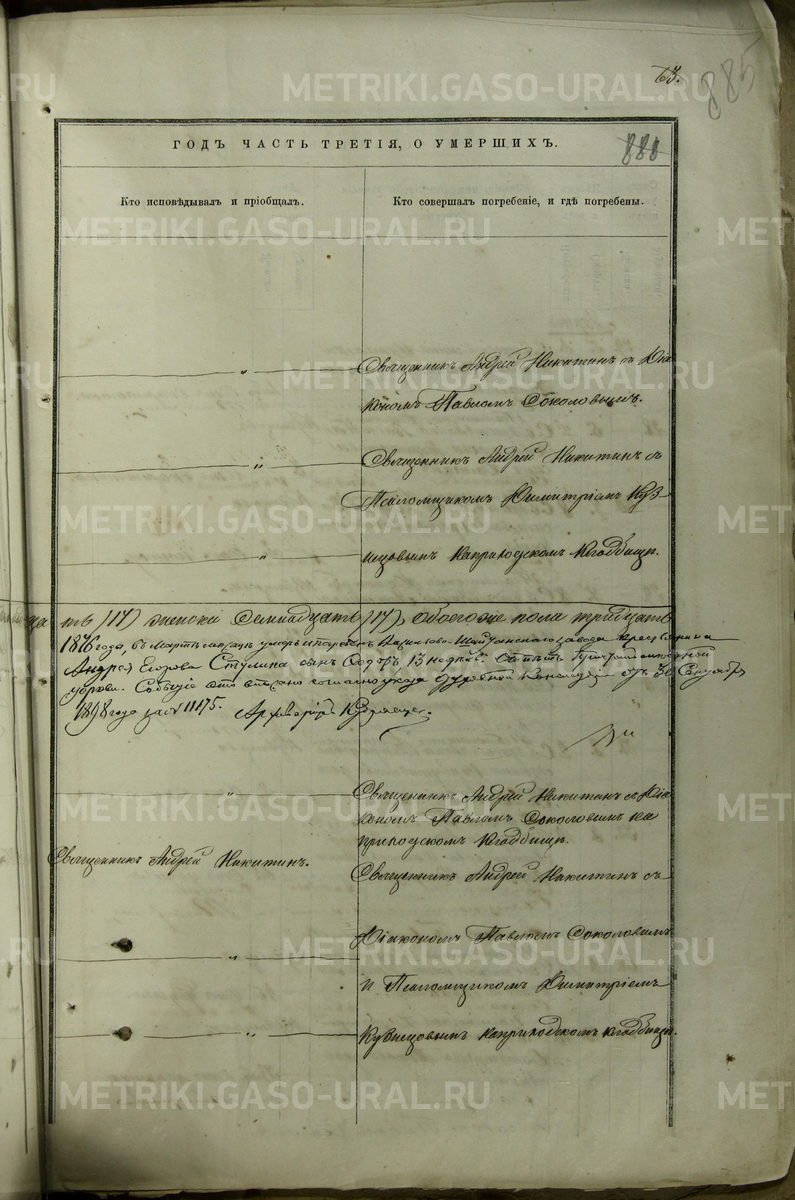 63.
885
880
ГОДЪ ЧАСТЬ ТРЕТІЯ, О УМЕРШИХЪ.
Кто исповѣдывалъ и пріобщалъ.
Кто совершалъ погребеніе, и гдѣ погребены.
Священникъ Андрей Никитинъ съ Діа
кономъ Павломъ Соколовымъ.
Священникъ Андрей Никитинъ съ
Псаломщикомъ Димитріемъ Куз
нецовымъ на приходскомъ кладбищѣ.
ть (17) женска Семнадцать (17), обоего пола тридцать
1876 года, въ Мартѣ мѣсяцѣ умеръ Шайтанскаго завода крестьянина
Андрея Егорова Ступина сынъ Ѳедоръ 13 недѣль.
церкви. Событіе это вписано согласно указа Духовной Консисторіи отъ 30 Сентября
1898 года за № 11175.
Священникъ Андрей Никитинъ съ Діа
кономъ Павломъ Соколовымъ на
приходскомъ кладбищѣ.
Священникъ Андрей Никитинъ.
Священникъ Андрей Никитинъ съ
Діакономъ Павломъ Соколовымъ
и Псаломщикомъ Димитріемъ
Кузнецовымъ на приходскомъ кладбищѣ.
METRIKI.GASO-URAL.RU